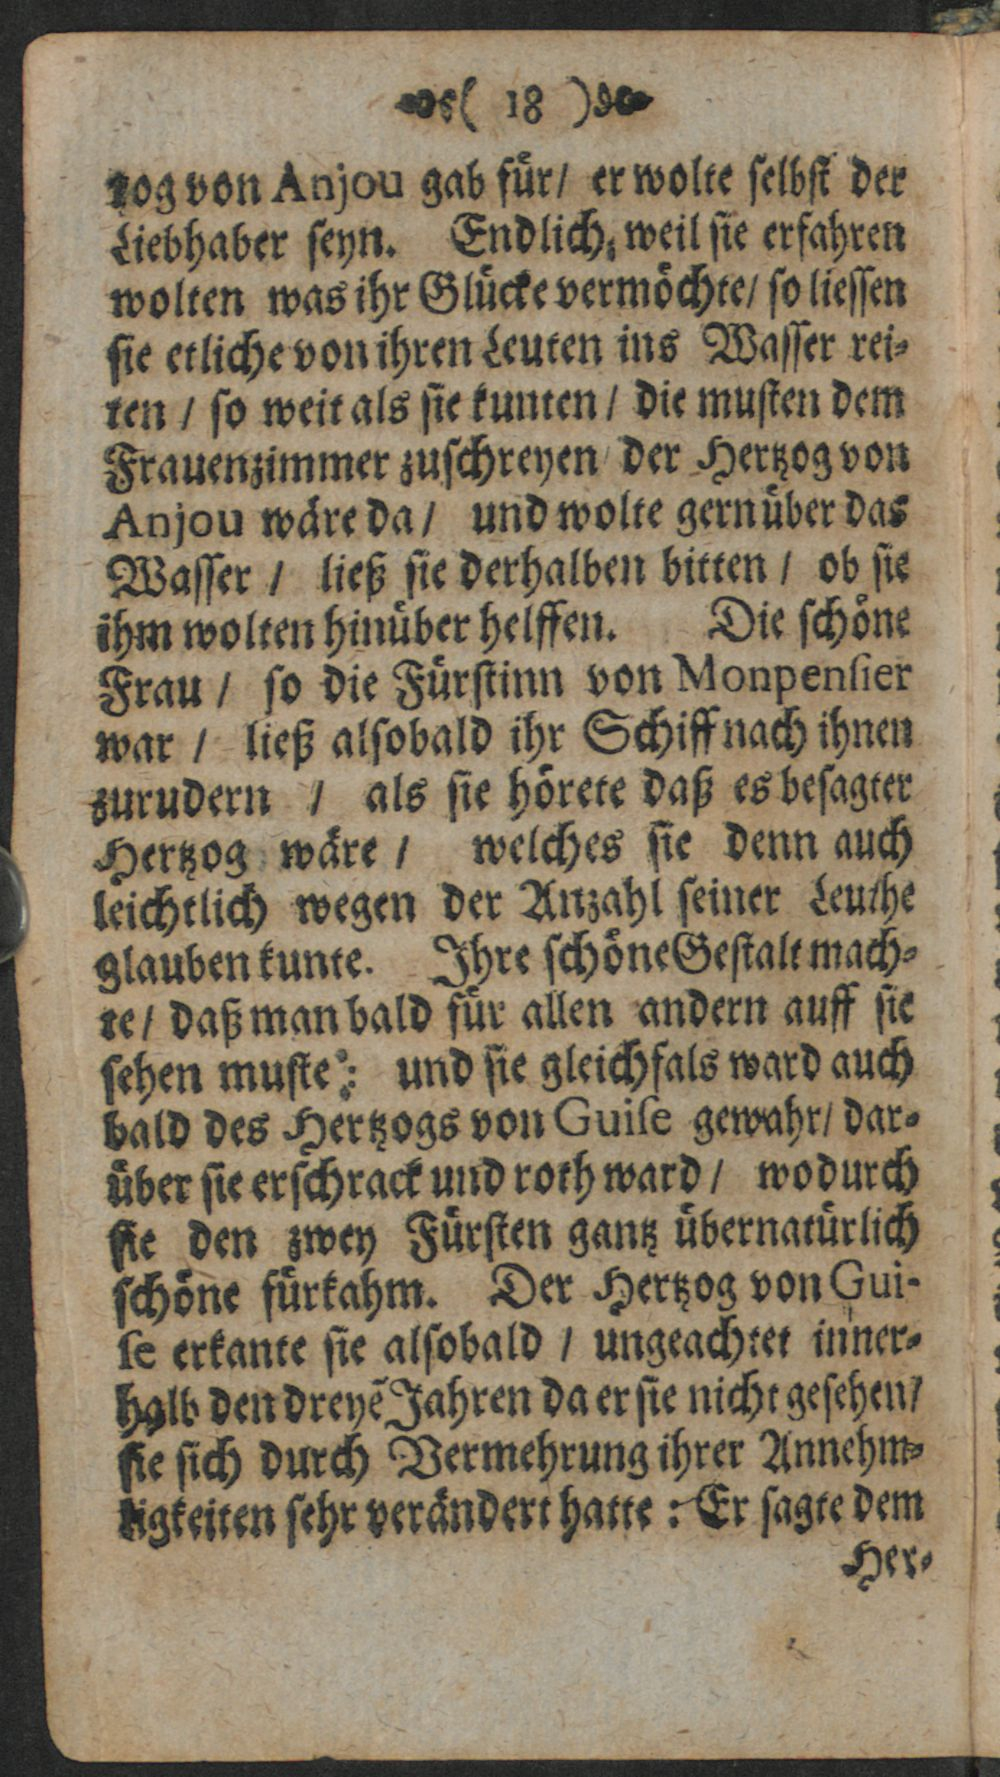 ( 18 )
tzog von Anjou gab für/ er wolte selbst der
Liebhaber seyn. Endlich, weil sie erfahren
wolten was ihr Glücke vermöchte/ so liessen
sie etliche von ihren Leuten ins Wasser rei-
ten / so weit als sie kunten / die musten dem
Frauenzimmer zuschreyen / der Hertzog von
Anjou wäre da / und wolte gern über das
Wasser / ließ sie derhalben bitten / ob sie
ihm wolten hinüber helffen. Die schöne
Frau / so die Fürstinn von Monpensier
war / ließ alsobald ihr Schiff nach ihnen
zurudern / als sie hörete daß es besagter
Hertzog wäre / welches sie denn auch
leichtlich wegen der Anzahl seiner Leuthe
glauben kunte. Ihre schöne Gestalt mach-
te/ daß man bald für allen andern auff sie
sehen muste: und sie gleichfals ward auch
bald des Hertzogs von Guise gewahr/ dar-
über sie erschrack und roth ward / wodurch
sie den zwey Fürsten gantz übernatürlich
schöne fürkahm. Der Hertzog von Gui-
se erkante sie alsobald / ungeachtet inner-
halb den dreyẽ Jahren da er sie nicht gesehen/
sie sich durch Vermehrung ihrer Annehm-
ligkeiten sehr verändert hatte : Er sagte dem
Her-